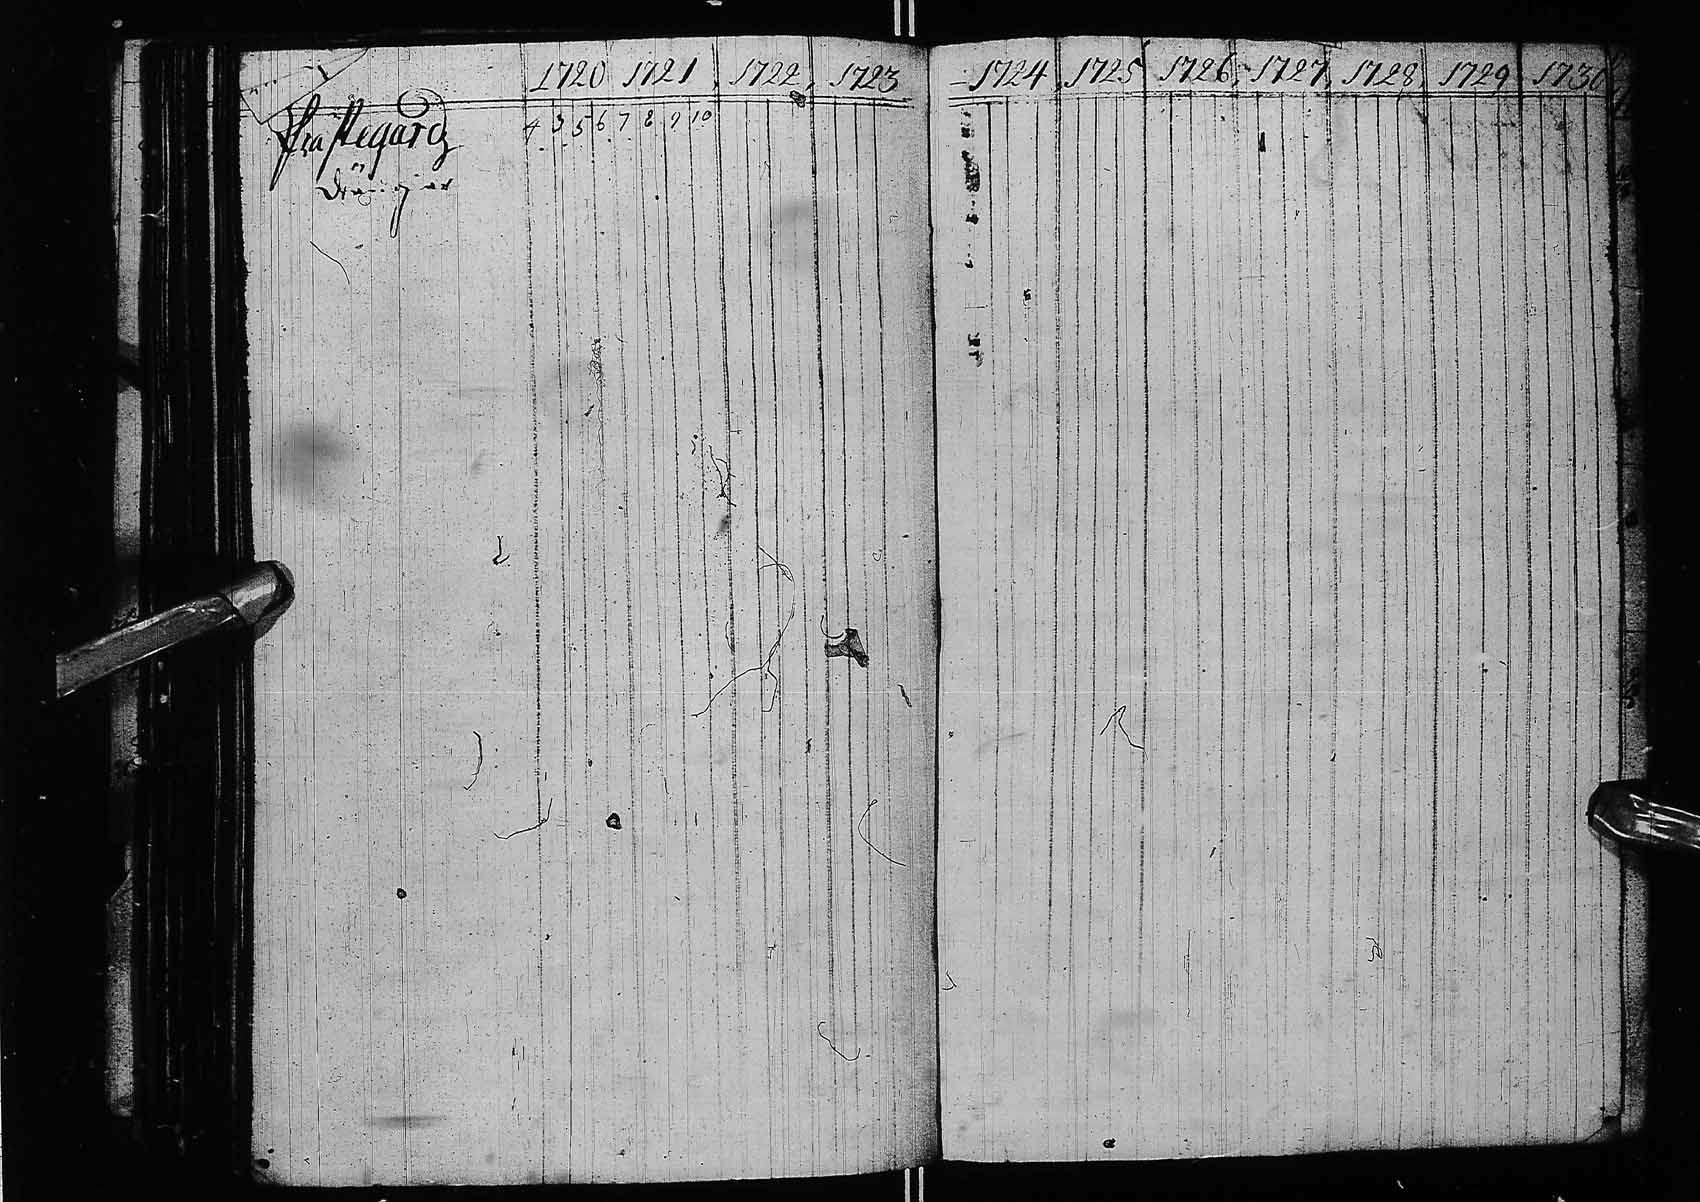 1720 1721 1722 1723 1724 1725 1726 1727 1728 1729 1730
Prästegård 4 3 5 6 7 8 9 10
Drängiar